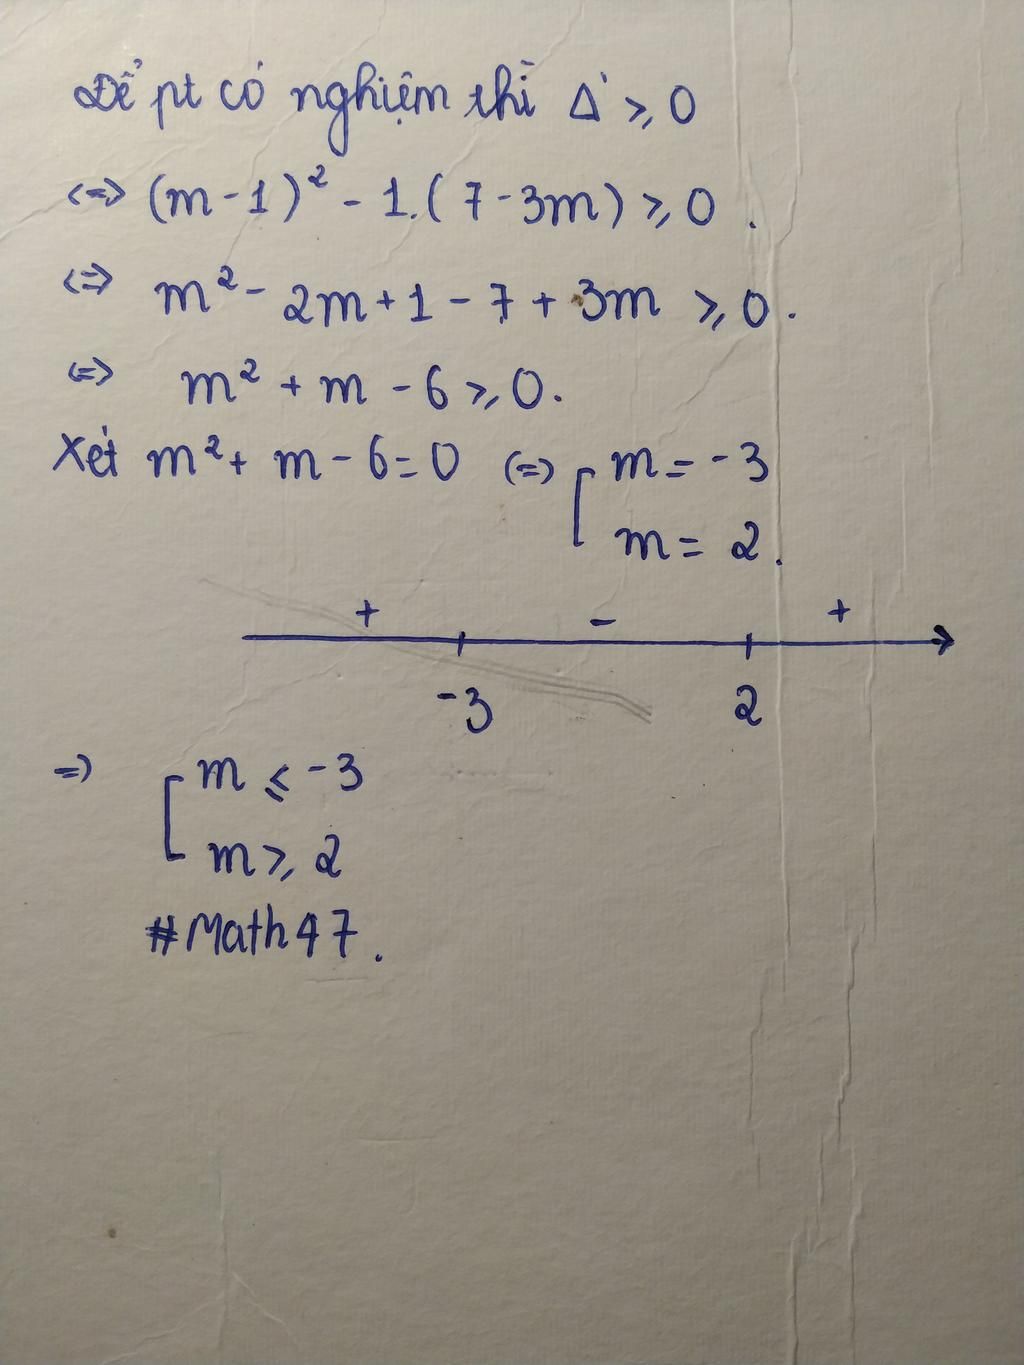 Để pt có nghiệm thì Δ' ≥ 0
<=> (m-1)² - 1.(7-3m) ≥ 0.
<=> m² - 2m + 1 - 7 + 3m ≥ 0.
<=> m² + m - 6 ≥ 0.
Xét m² + m - 6 = 0 <=> [ m = -3
m = 2.
+ - +
-3 2
=> [ m ≤ -3
m ≥ 2
#Math47.